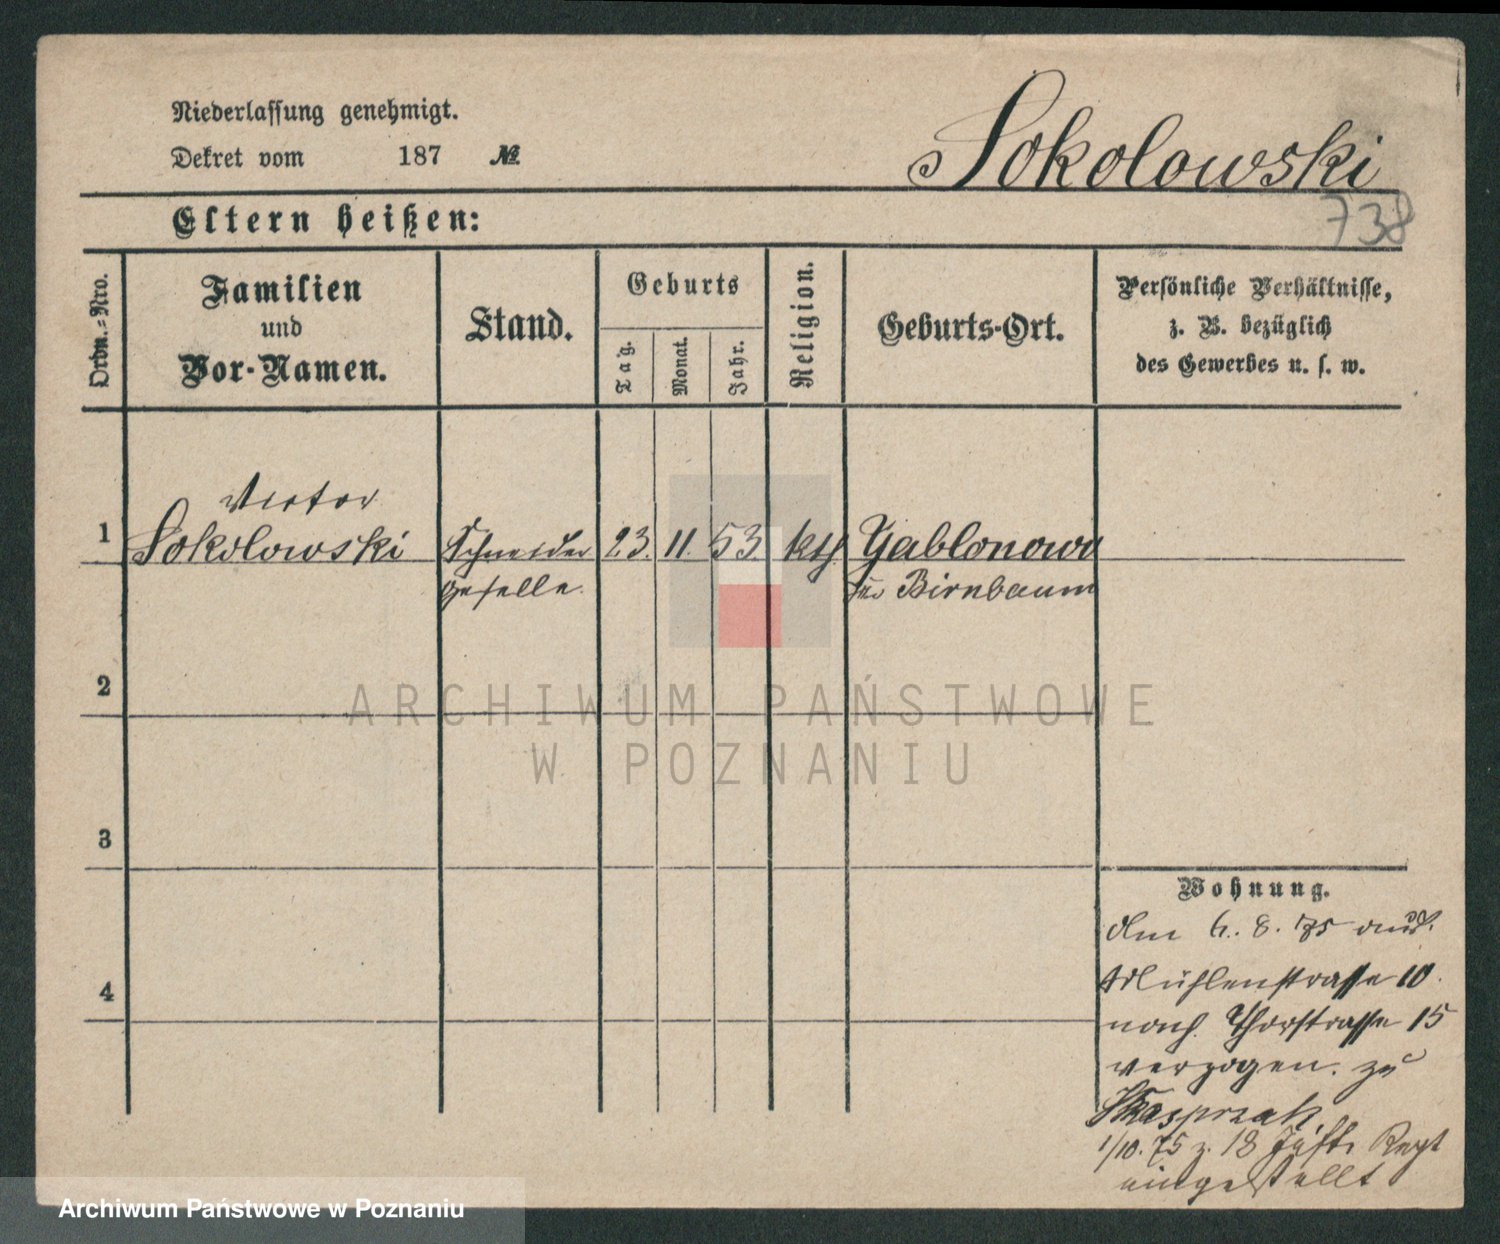 Niederlassung genehmigt.
Dekret vom 187 №
Sokolowski
738
Eltern heißen:
Ordn.-Nro.
Familien
und
Vor-Namen.
Stand.
Geburts
Tag.
Monat.
Jahr.
Religion.
Geburts-Ort.
Persönliche Verhältnisse,
z. B. bezüglich
des Gewerbes u. s. w.
Victor
1 Sokolowski Schneider 23. 11. 53. kth Jablonowo
geselle. Birnbaum
2
3
4
Wohnung.
6. 8. 75
Mühlenstrasse 10.
nach Thorstrasse 15
verzogen. zu
Kasprzak
1/10. 75 z. 18 Regt
eingestellt
ARCHIWUM PAŃSTWOWE
W POZNANIU
Archiwum Państwowe w Poznaniu